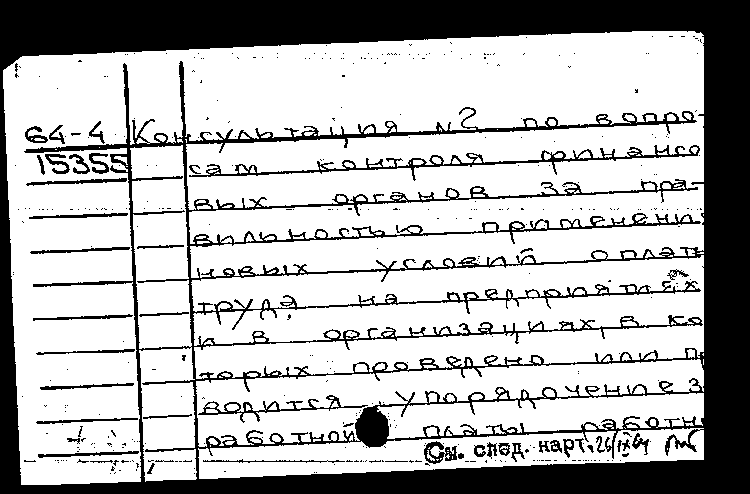 64-4 Консультация №2 по вопро-
15355 сам контроля финансо
вых органов за пра-
вильностью применения
новых условий оплат
труда на предприятиях
и в организациях, в ко
торых проведено или пр
водится упорядочение з
работной платы работн
См. след. карт. 26/IX 64